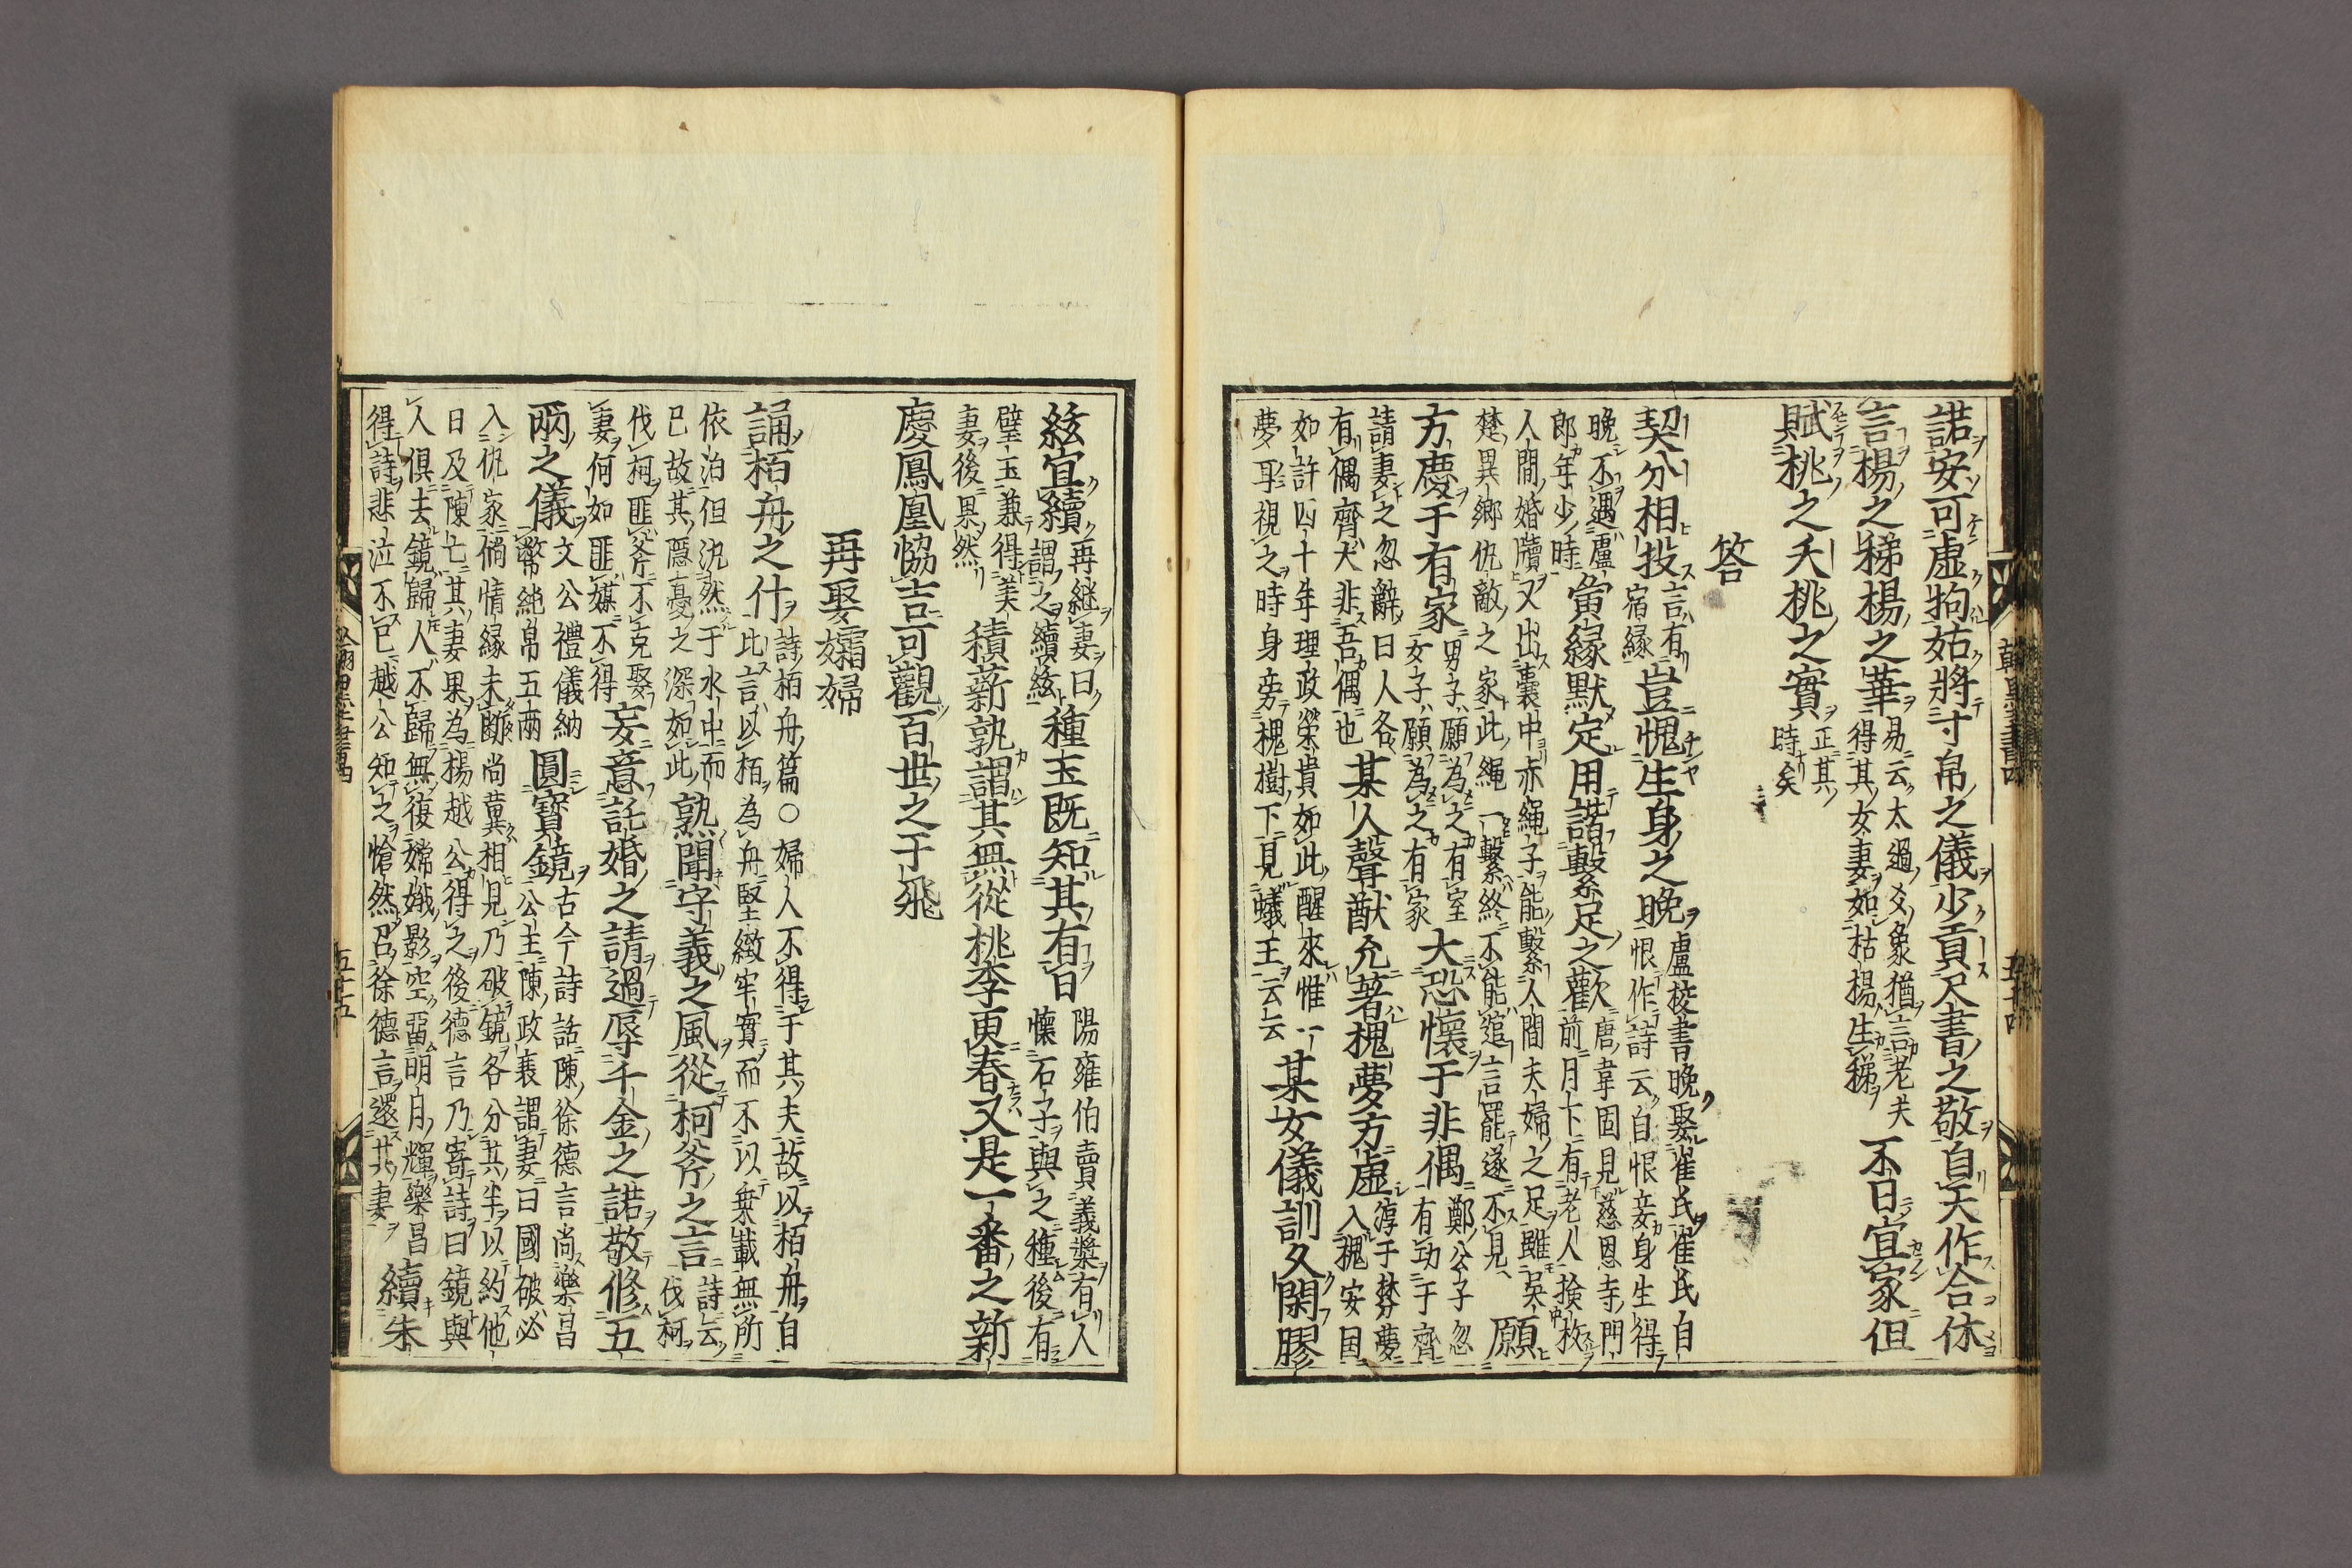 諾安可虛拘姑將寸帛之儀少貢尺書之敬自天作合休
言楊之稊楊之華易云太過爻象猶言老夫得其女妻如枯楊生稊不日宜家但
賦桃之夭桃之實正其時矣
答
契分相投言有宿緣豈愧生身之晚盧校書晚娶崔氏崔氏自恨作詩云自恨妾身生得
晚不遇盧郎年少時寅緣默定用諧繫足之歡唐韋固見慈恩寺門前月下有老人撿枚
人間婚牘又出囊中赤繩子能繫人間夫婦之足雖吳楚異鄉仇敵之家此繩一繫終不能逭言罷遂不見願
方慶于有家男子願為之有室女子願為之有家大恐懷于非偶鄭公子忽有功于齊
請妻之忽辭曰人各有偶齊大非吾偶也某人聲猷允著槐夢方虛淳于棼夢入槐安國
如許四十年理政榮貴如此醒來惟一夢耳視之時身旁槐樹下見蟻王云云某女儀訓久閑膠
絃宜續再継妻曰謂之續絃種玉既知其有日陽雍伯賣義漿有人懷石子與之種後有
璧玉兼得美妻後果然積薪孰謂其無從桃李更春又是一番之新
慶鳳凰恊吉可觀百世之于飛
再娶孀婦
誦栢舟之什詩栢舟篇○婦人不得于其夫故以栢舟自比言以栢為舟堅緻牢實而不以乗載無所
依泊但汎然于水中而已故其隱憂之深如此熟聞守義之風從柯斧之言詩云伐柯
伐柯匪斧不克娶妻何如匪媒不得妄意託婚之請過辱千金之諾敬修五
兩之儀文公禮儀納幣純帛五兩圓寶鏡古今詩話陳徐德言尚樂昌公主陳政衰謂妻曰國破必
入仇家倘情緣未斷尚冀相見乃破鏡各分其半以約他日及陳亡其妻果為楊越公得之後德言乃寄詩曰鏡與
人俱去鏡歸人不歸無復嫦娥影空畱明月輝樂昌得詩悲泣不已越公知之愴然召徐德言還其妻續朱
翰墨全書四
五十四
五十五